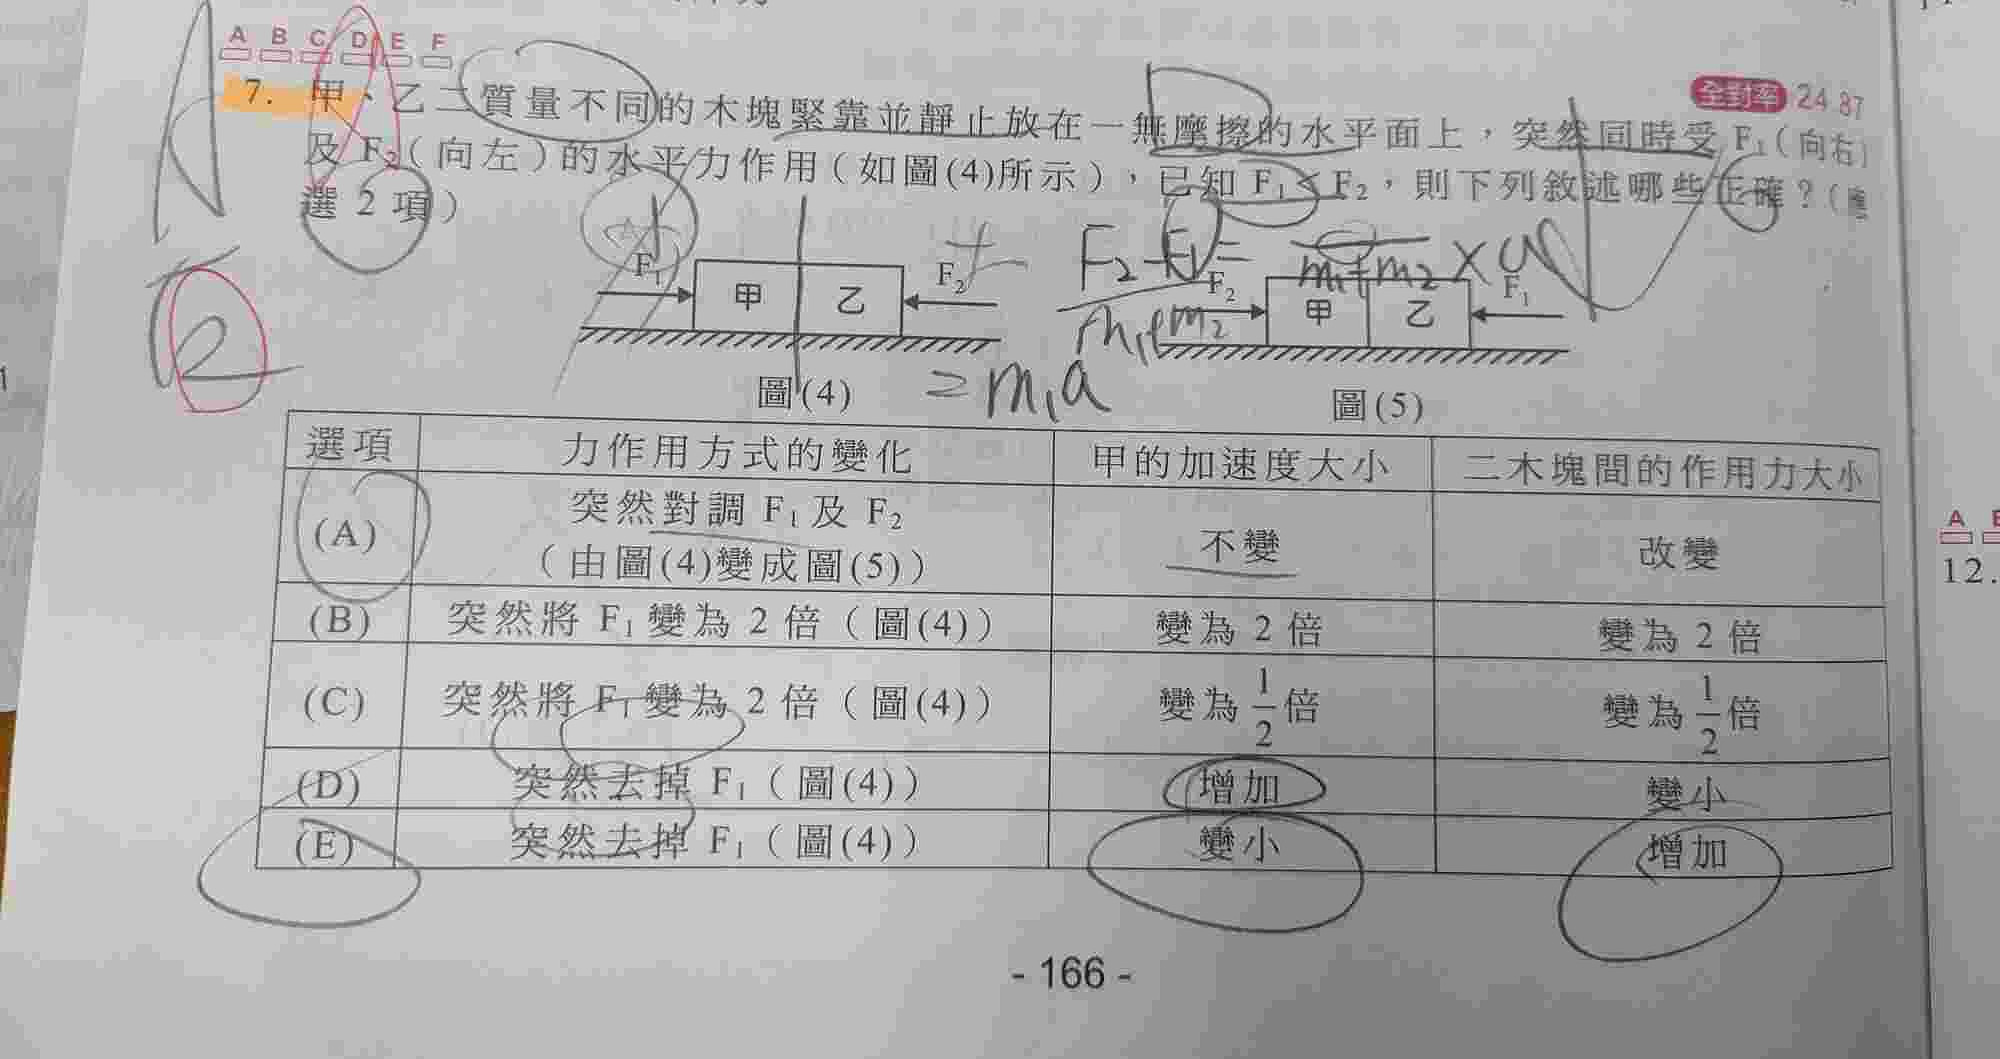 A B C D E F
7. 甲、乙二質量不同的木塊緊靠並靜止放在一無摩擦的水平面上，突然同時受 F₁(向右)
全對率 24.87
及 F₂(向左)的水平力作用(如圖(4)所示)，已知 F₁<F₂，則下列敘述哪些正確？(應
選 2 項)
F₁ 甲 乙 F₂
F₂ 甲 乙 F₁
F₂-F₁= m₁+m₂ × a
m₁+m₂
=m₁a
圖(4)
圖(5)
選項 力作用方式的變化 甲的加速度大小 二木塊間的作用力大小
(A) 突然對調 F₁及 F₂
(由圖(4)變成圖(5)) 不變 改變
(B) 突然將 F₁變為 2 倍(圖(4)) 變為 2 倍 變為 2 倍
(C) 突然將 F₁變為 2 倍(圖(4)) 變為 1/2 倍 變為 1/2 倍
(D) 突然去掉 F₁(圖(4)) 增加 變小
(E) 突然去掉 F₁(圖(4)) 變小 增加
- 166 -
A
12.